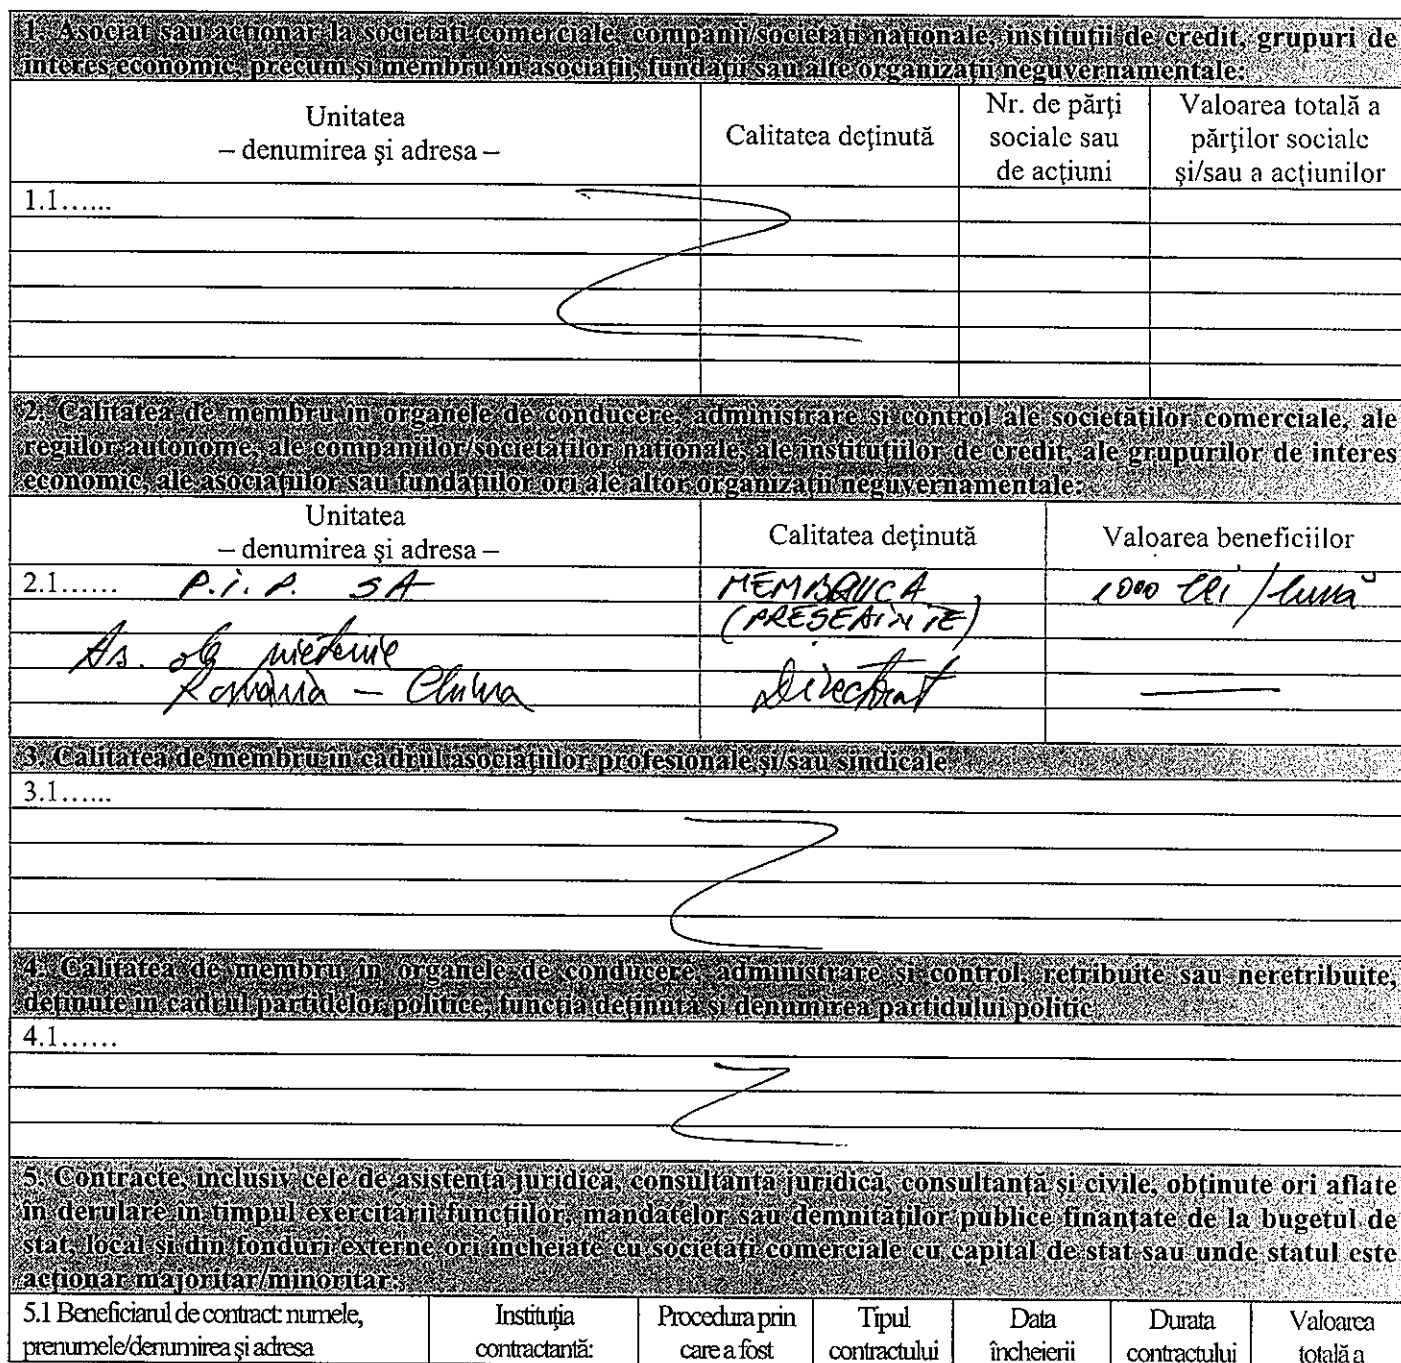 1. Asociat sau acţionar la societăţi comerciale, companii/societăţi naţionale, instituţii de credit, grupuri de
interes economic, precum şi membru în asociaţii, fundaţii sau alte organizaţii neguvernamentale:
Unitatea
– denumirea şi adresa –
Calitatea deţinută
Nr. de părţi
sociale sau
de acţiuni
Valoarea totală a
părţilor sociale
şi/sau a acţiunilor
1.1......
2. Calitatea de membru în organele de conducere, administrare şi control ale societăţilor comerciale, ale
regiilor autonome, ale companiilor/societăţilor naţionale, ale instituţiilor de credit, ale grupurilor de interes
economic, ale asociaţiilor sau fundaţiilor ori ale altor organizaţii neguvernamentale:
Unitatea
– denumirea şi adresa –
Calitatea deţinută
Valoarea beneficiilor
2.1...... P.i.P. SA
1000 lei / lună
As. de prietenie
România – China
Directorat
3. Calitatea de membru în cadrul asociaţiilor profesionale şi/sau sindicale
3.1......
4. Calitatea de membru în organele de conducere, administrare şi control, retribuite sau neretribuite,
deţinute în cadrul partidelor politice, funcţia deţinută şi denumirea partidului politic
4.1......
5. Contracte, inclusiv cele de asistenţă juridică, consultanţă juridică, consultanţă şi civile, obţinute ori aflate
în derulare în timpul exercitării funcţiilor, mandatelor sau demnităţilor publice finanţate de la bugetul de
stat, local şi din fonduri externe ori încheiate cu societăţi comerciale cu capital de stat sau unde statul este
acţionar majoritar/minoritar:
5.1 Beneficiarul de contract: numele,
prenumele/denumirea şi adresa
Instituţia
contractantă:
Procedura prin
care a fost
Tipul
contractului
Data
încheierii
Durata
contractului
Valoarea
totală a